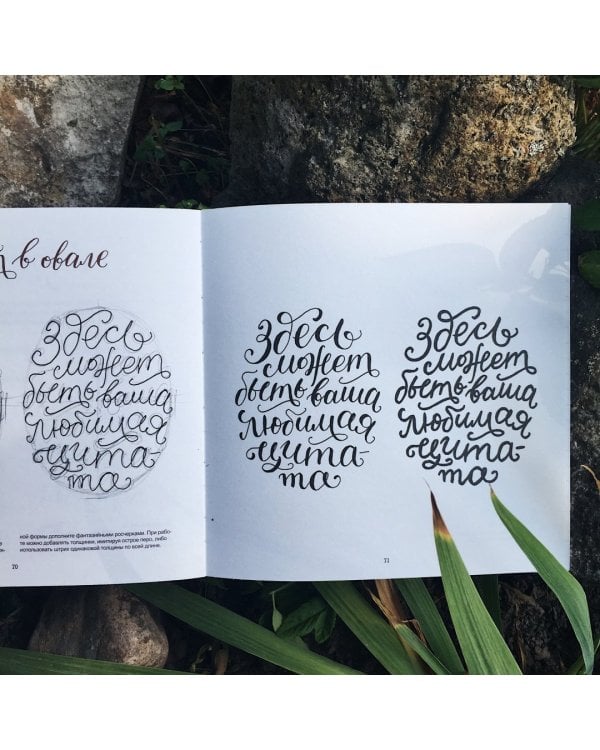 в овале
Здесь
может
быть ваша
любимая
цита-
та
ной формы дополните фантазийными росчерками. При рабо-
те можно добавлять толщинки, имитируя острое перо, либо
использовать штрих одинаковой толщины по всей длине.
70
Здесь
может
быть ваша
любимая
цита-
та
Здесь
может
быть ваша
любимая
цита-
та
71